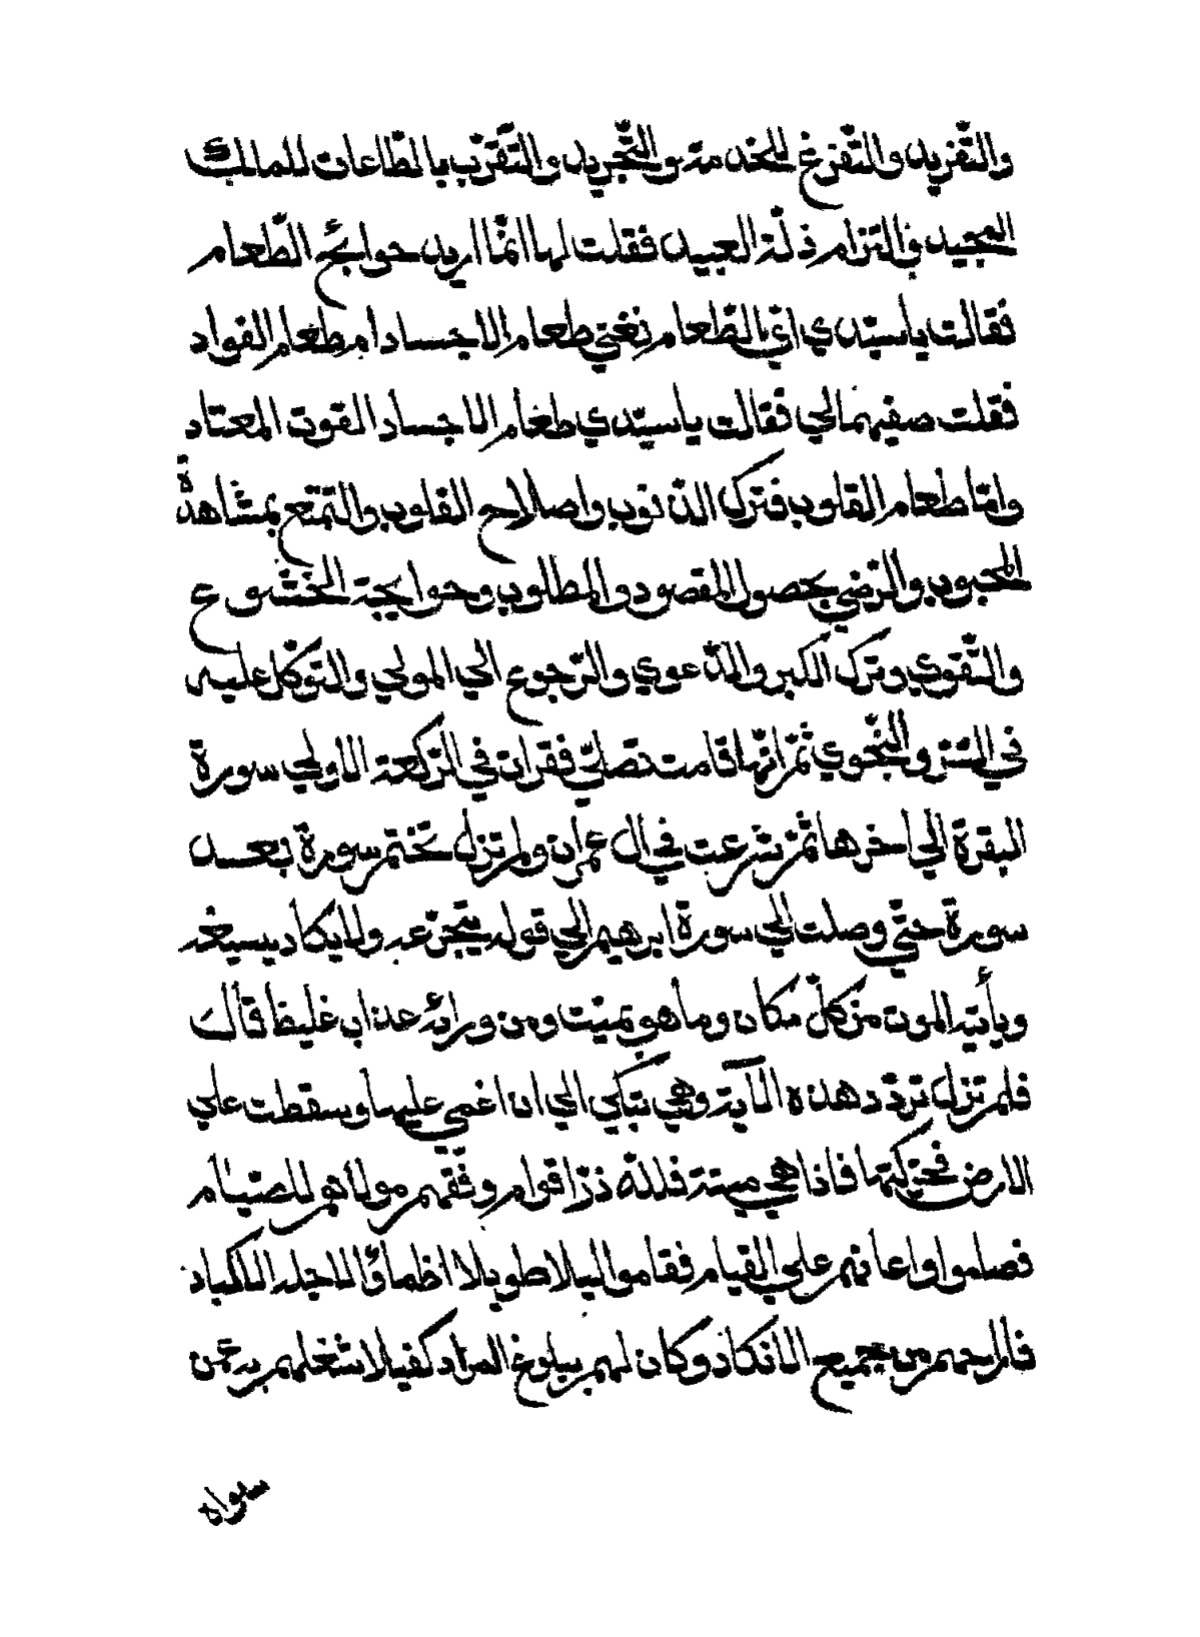 والتّفريد والتّفرّغ للخدمة والتّجريد والتّقرّب بالطّاعات للمالك
المجيد في التزام ذلّة العبيد فقلت لها انّما اريد حوايج الطّعام
فقالت ياسيّدي ايّ الطّعام تعني طعام الاجساد ام طعام الفواد
فقلت صفيهما لي فقالت ياسيّدي طعام الاجساد القوت المعتاد
وامّا طعام القلوب فترك الذّنوب واصلاح القلوب والتّمتّع بمشاهدة
المحبوب والرّضي بحصول المقصود والمطلوب وحوايجه الخشوع
والتّقوي وترك الكبر والدّعوي والرّجوع الي المولي والتّوكّل عليه
في السّرّ والنّجوي ثمّ انّها قامت تصلّي فقرات في الرّكعة الاولي سورة
البقرة الي اخرها ثمّ شرعت في ال عمران ولم تزل تختم سورة بعد
سورة حتّي وصلت الي سورة ابرهيم الي قوله يتجرّعه ولا يكاد يسيغه
ويأتيه الموت من كلّ مكان وما هو بميّت ومن ورائه عذاب غليظ قال
فلم تزل تردّد هذه الآية وهي تبكي الي ان اغمي عليها وسقطت علي
الارض فحرّكتها فاذا هي ميتة فللّه درّ اقوام وفّقهم مولاهم للصّيام
فصاموا واعانهم علي القيام فقاموا ليلا طويلا اظماؤا لاجله الاكباد
فاراحهم من جميع الانكاد وكان لهم ببلوغ المراد كفيلا شغلهم به عمّن
سواه